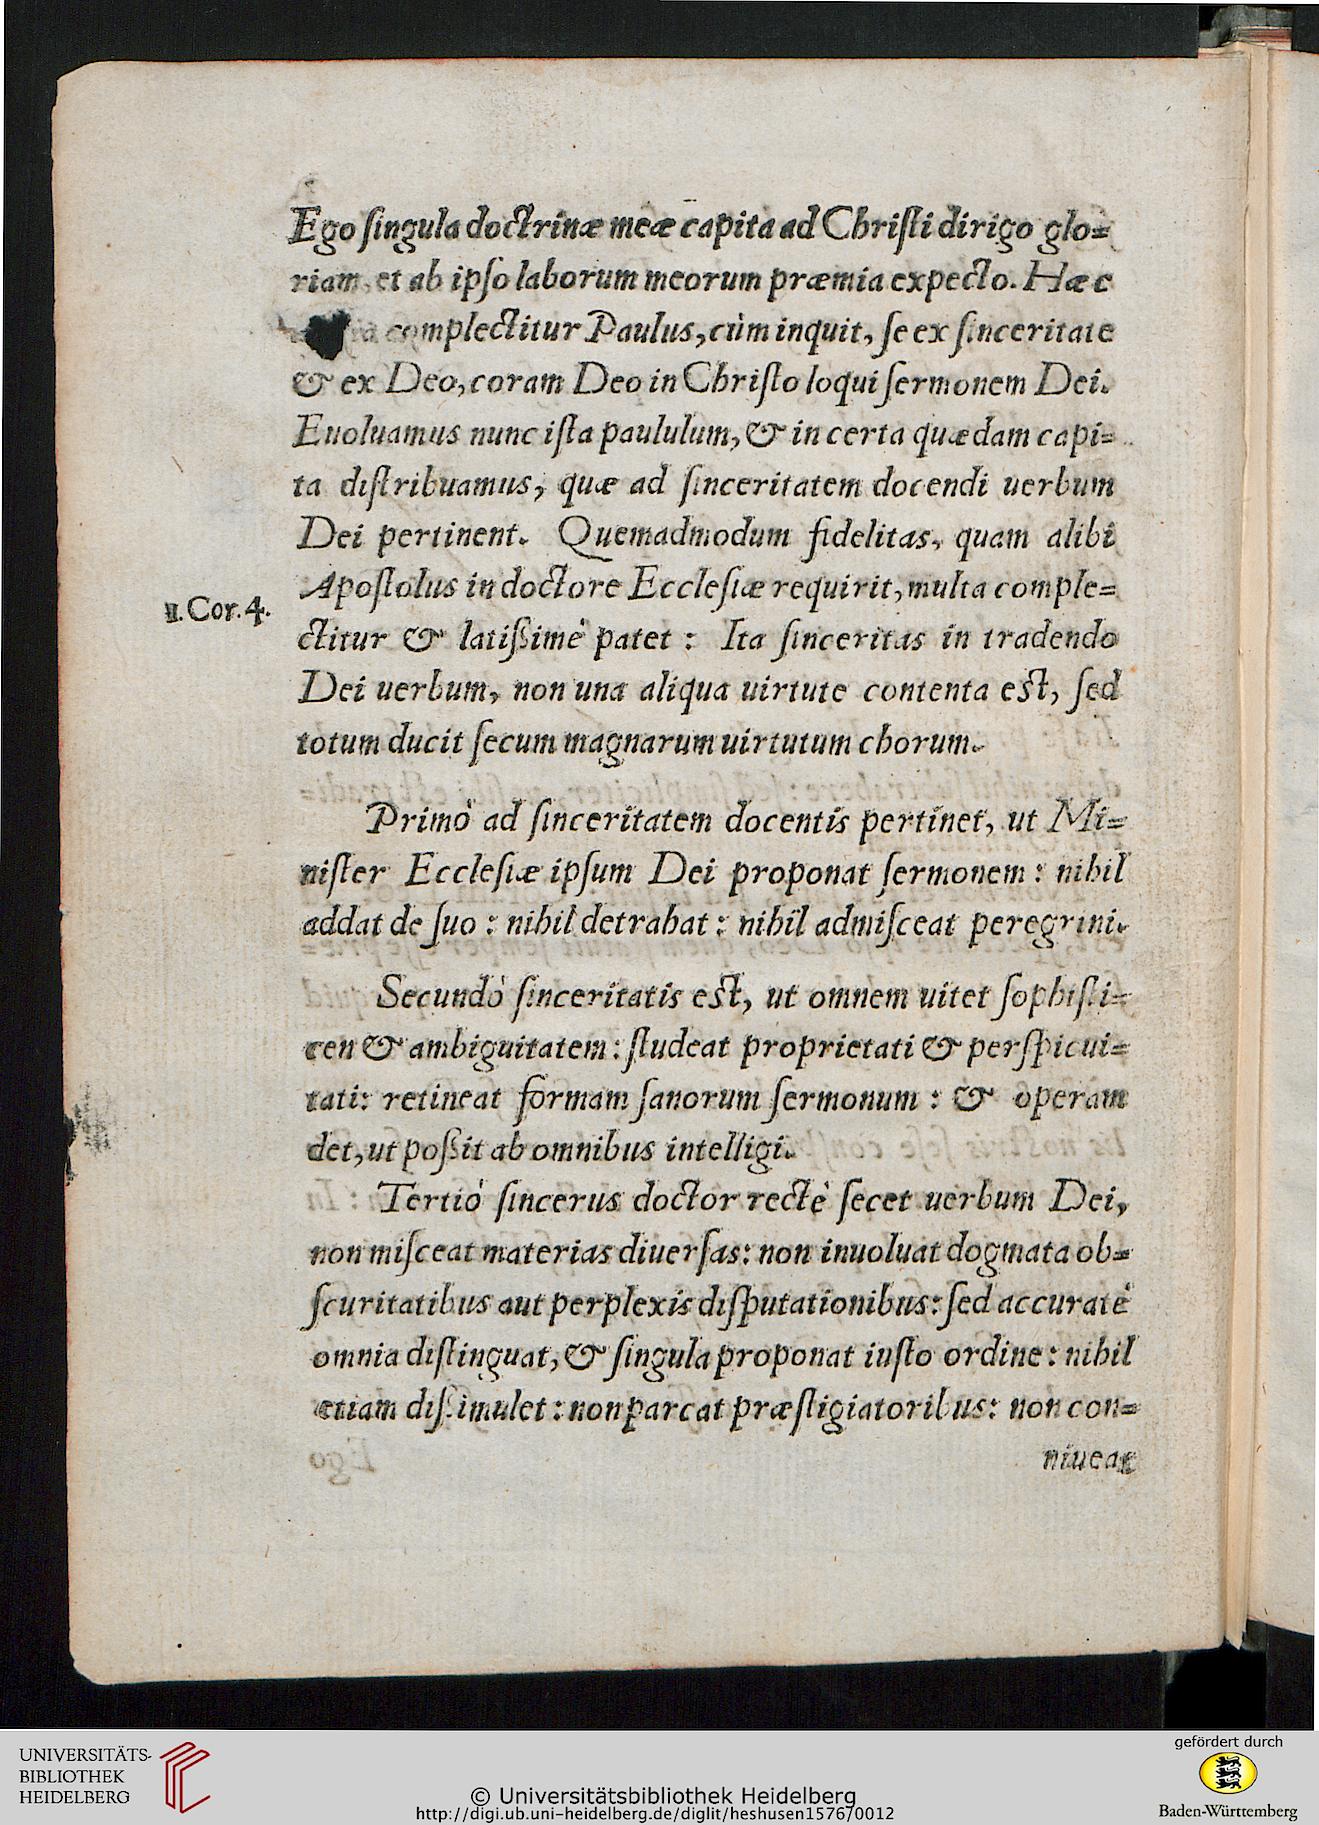 Ego ſingula doctrinæ meæ capita ad Chriſti dirigo glo=
riam, et ab ipſo laborum meorum præmia expecto. Hæc
complectitur Paulus, cùm inquit, ſe ex ſinceritate
& ex Deo, coram Deo in Chriſto loqui ſermonem Dei.
Euoluamus nunc iſta paululum, & in certa quædam capi=
ta diſtribuamus, quæ ad ſinceritatem docendi uerbum
Dei pertinent. Quemadmodum fidelitas, quam alibi
Apoſtolus in doctore Eccleſiæ requirit, multa comple=
1. Cor. 4.
ctitur & latiſsimè patet : Ita ſinceritas in tradendo
Dei uerbum, non una aliqua uirtute contenta eſt, ſed
totum ducit ſecum magnarum uirtutum chorum.
Primò ad ſinceritatem docentis pertinet, ut Mi=
niſter Eccleſiæ ipſum Dei proponat ſermonem : nihil
addat de ſuo : nihil detrahat : nihil admiſceat peregrini.
Secundò ſinceritatis eſt, ut omnem uitet ſophiſti=
cen & ambiguitatem : ſtudeat proprietati & perſpicui=
tati: retineat formam ſanorum ſermonum : & operam
det, ut poſsit ab omnibus intelligi.
Tertiò ſincerus doctor rectè ſecet uerbum Dei,
non miſceat materias diuerſas: non inuoluat dogmata ob=
ſcuritatibus aut perplexis diſputationibus: ſed accuratè
omnia diſtinguat, & ſingula proponat iuſto ordine : nihil
etiam diſsimulet : non parcat præſtigiatoribus: non con=
niueat
UNIVERSITÄTS-
BIBLIOTHEK
HEIDELBERG
© Universitätsbibliothek Heidelberg
http://digi.ub.uni-heidelberg.de/diglit/heshusen157670012
gefördert durch
Baden-Württemberg